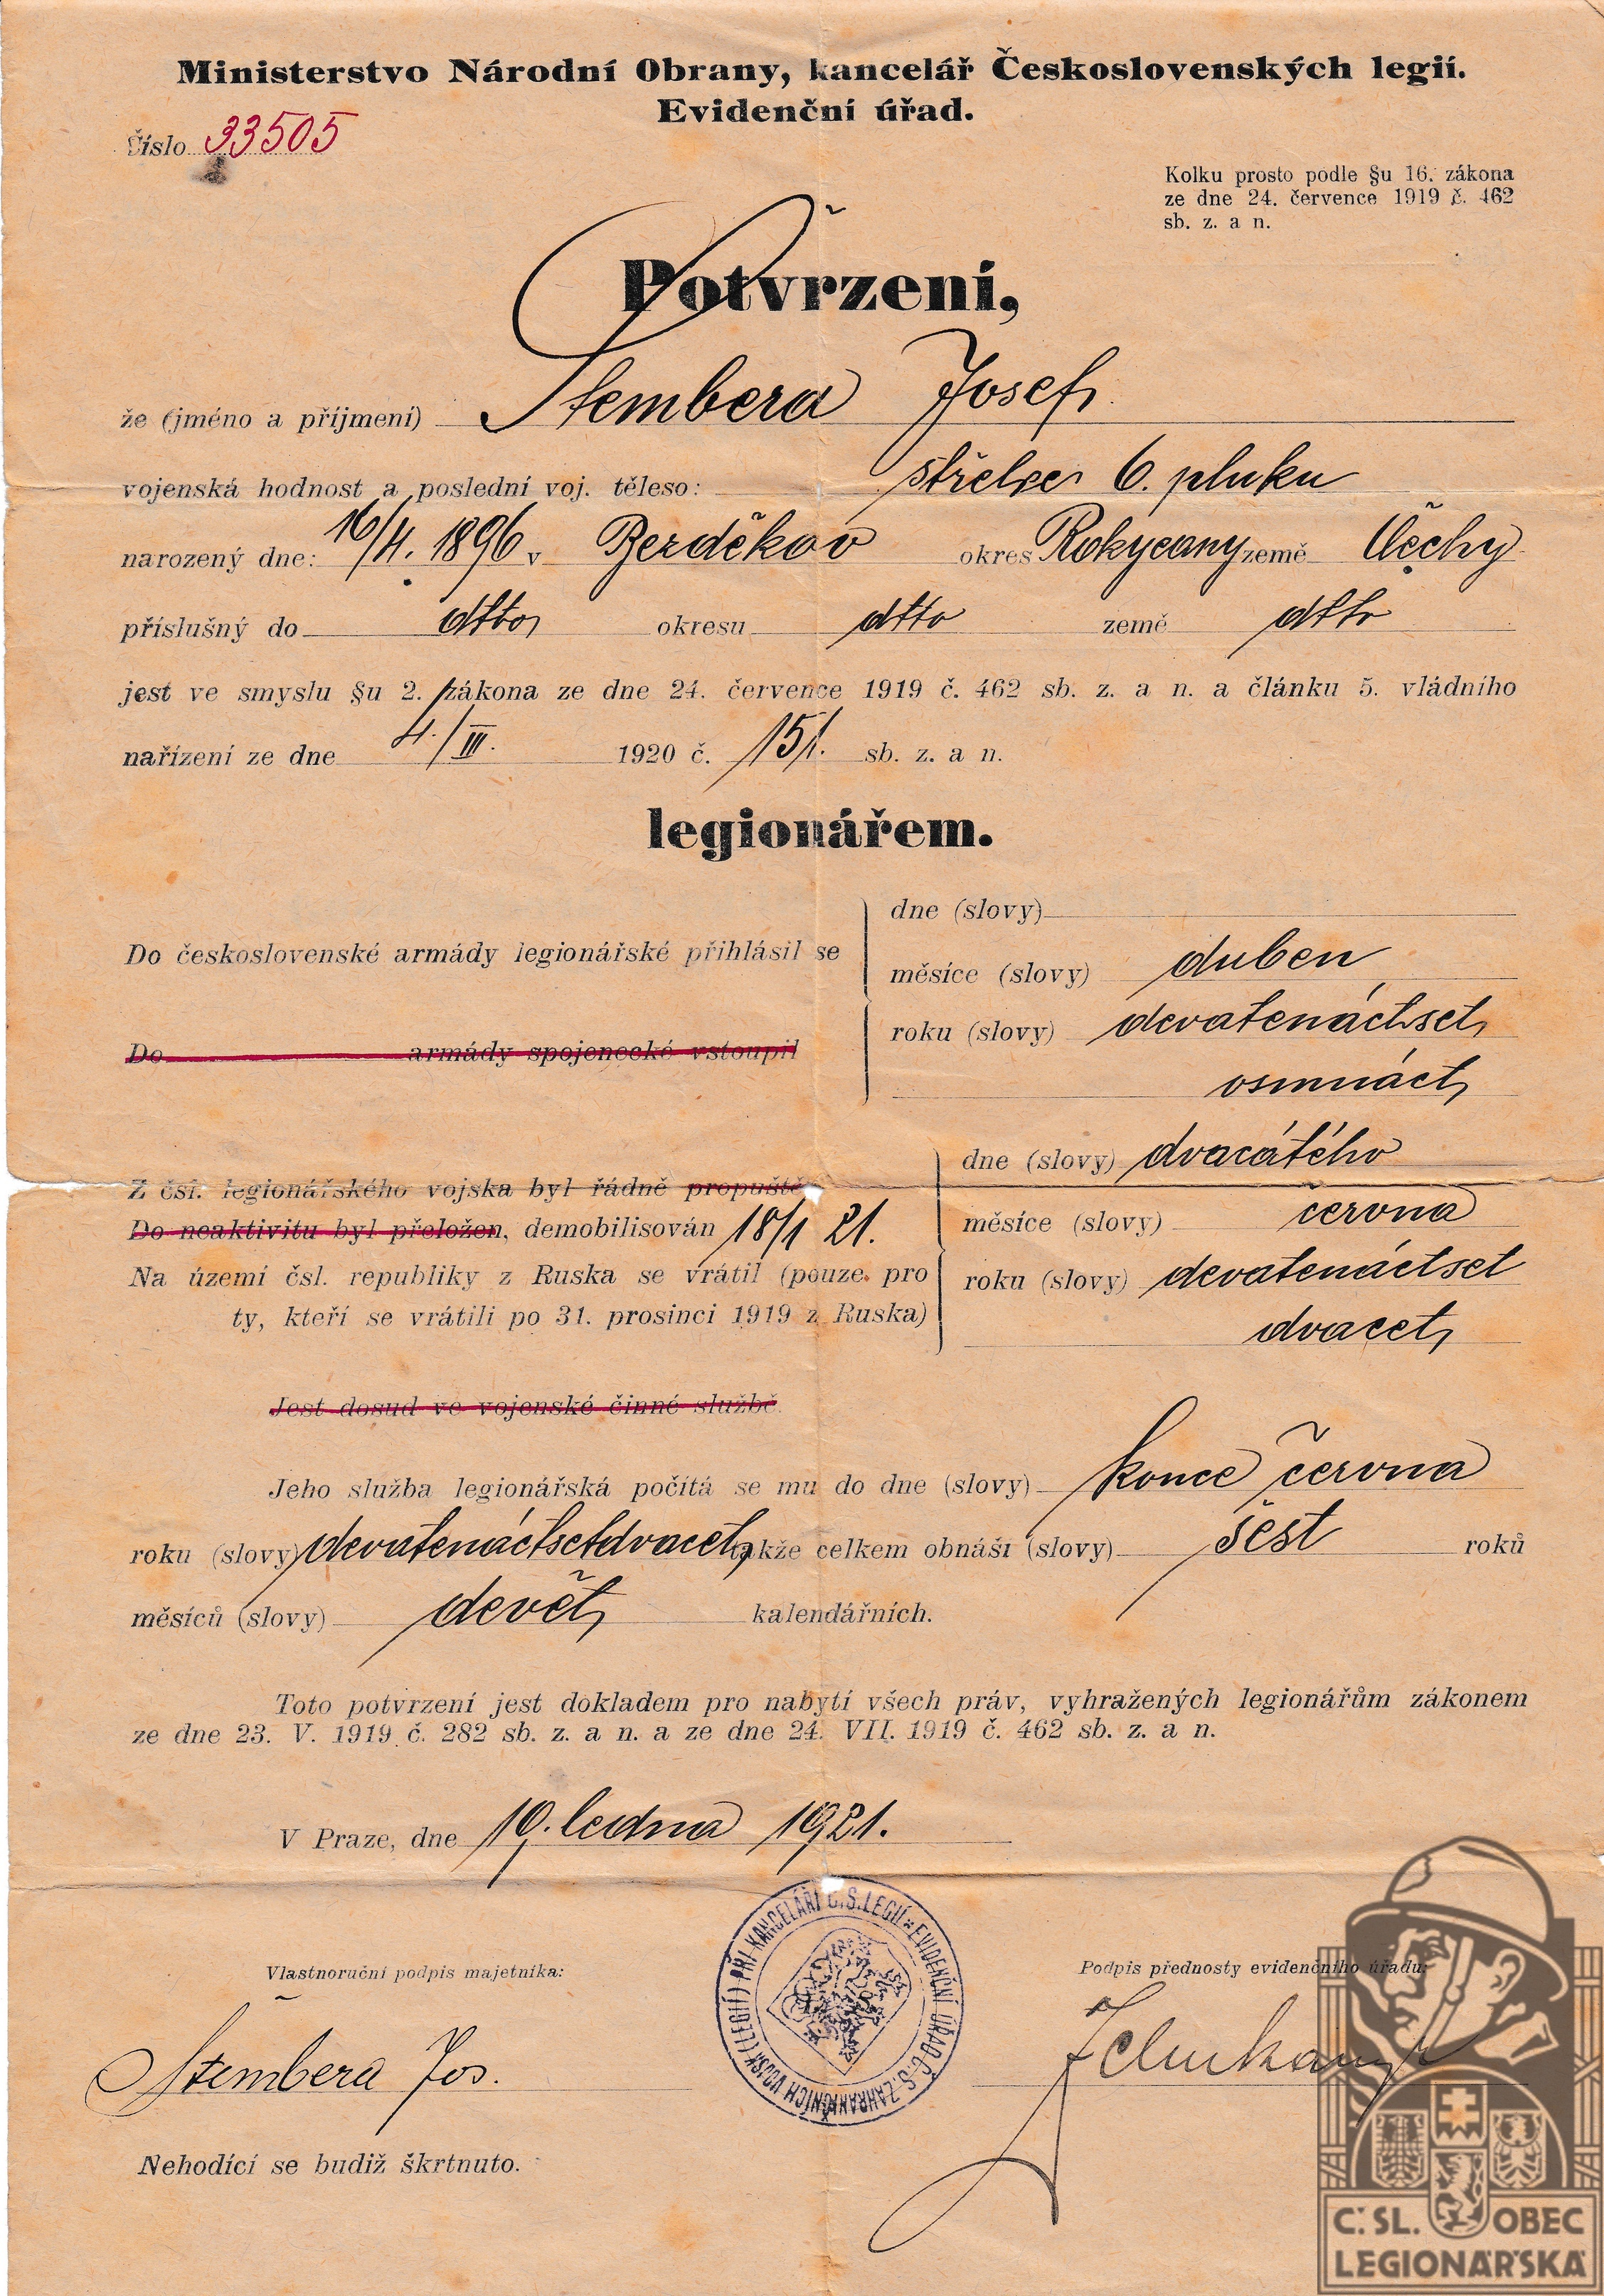 Ministerstvo Národní Obrany, kancelář Československých legií.
Evidenční úřad.
Číslo 33505
Kolku prosto podle §u 16. zákona
ze dne 24. července 1919 č. 462
sb. z. a n.
Potvrzení,
že (jméno a příjmení) Štembera Josef
vojenská hodnost a poslední voj. těleso: střelec 6. pluku
narozený dne: 16/4. 1896 v Bezděkov okres Rokycany země Čechy
příslušný do dtto okresu dtto země dtto
jest ve smyslu §u 2. zákona ze dne 24. července 1919 č. 462 sb. z. a n. a článku 5. vládního
nařízení ze dne 4./III. 1920 č. 151. sb. z. a n.
legionářem.
Do československé armády legionářské přihlásil se
Do armády spojenecké vstoupil
dne (slovy)
měsíce (slovy) duben
roku (slovy) devatenáctset
osmnáct
Z čsl. legionářského vojska byl řádně propuště
Do neaktivitu byl přeložen, demobilisován 18/1 21.
Na území čsl. republiky z Ruska se vrátil (pouze pro
ty, kteří se vrátili po 31. prosinci 1919 z Ruska)
dne (slovy) dvacátého
měsíce (slovy) června
roku (slovy) devatenáctset
dvacet
Jest dosud ve vojenské činné službě.
Jeho služba legionářská počítá se mu do dne (slovy) konce června
roku (slovy) devatenáctsetdvacet, takže celkem obnáší (slovy) šest roků
měsíců (slovy) devět kalendářních.
Toto potvrzení jest dokladem pro nabytí všech práv, vyhražených legionářům zákonem
ze dne 23. V. 1919 č. 282 sb. z. a n. a ze dne 24. VII. 1919 č. 462 sb. z. a n.
V Praze, dne 19. ledna 1921.
EVIDENČNÍ ÚŘAD Č.S. ZAHRANIČNÍCH VOJSK (LEGIÍ) PŘI KANCELÁŘI Č.S. LEGIÍ
Vlastnoruční podpis majetníka:
Podpis přednosty evidenčního úřadu:
Štembera Jos.
Nehodící se budiž škrtnuto.
Č. SL. OBEC
LEGIONÁŘSKÁ